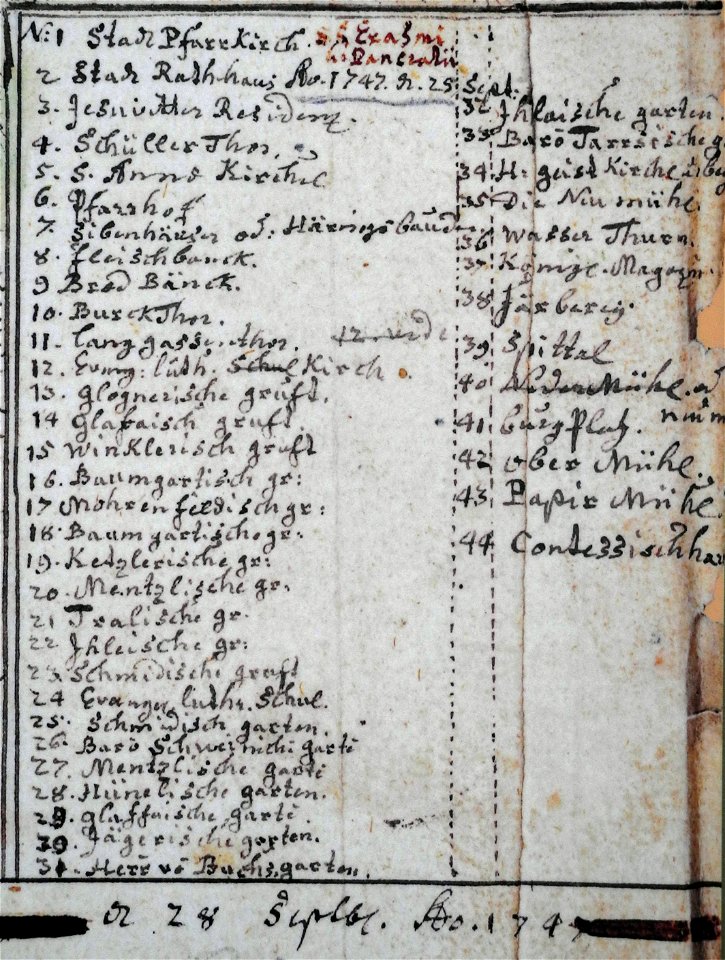 N: 1 Stadt Pfarrkirch. S.S. Erasmi
et Pancratii
2 Stadt Rathhaus Ao. 1747. d. 25 Sept.
3. Jesuitter Residenz.
4. Schüller Thor.
5. S. Anna Kirchel
6. Pfarrhof
7. Sibenhäuser od: Häringsbauden
8. fleischbanck.
9 Brod Bänck.
10. Burck Thor.
11. langgassen thor.
12. Evang: luth. Schul Kirch.
13. glognerische gruft.
14 glafaisch gruft.
15 Winklerisch gruft
16. Baumgartisch gr:
17 Mohrenfeldisch gr:
18. Baumgartische gr:
19. Ketzlerische gr:
20. Mentzlische gr.
21 Tralische gr.
22 Jhleische gr:
23. Schmidische gruft
24 Evangel luthr. Schul.
25. Schmidisch garten.
26. Baro Schweinichi garte
27. Mentzlische garte
28. Hünelische garten.
29. glaffaische garte
30. Jägerische garten.
31. Herr vo Buchs garten.
32 Jhlaische garten.
33 Baro
34 H: geist Kirchel
35 Die Neu mühl.
36 Wasser Thurn.
37 Königl. Magazin
38 färberey.
39 Spittel
40 Mühl.
41 burgPlatz.
42 Ober Mühl.
43 Papir Mühl.
44 Contessisch
d 28 Septbr. Ao. 174